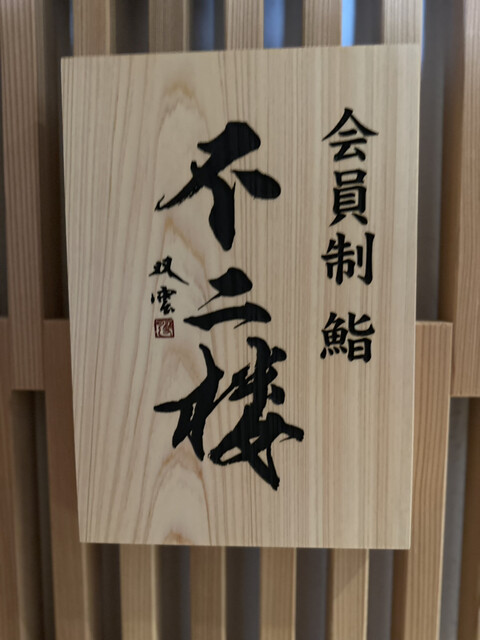 会員制 鮨
不二楼
双雲